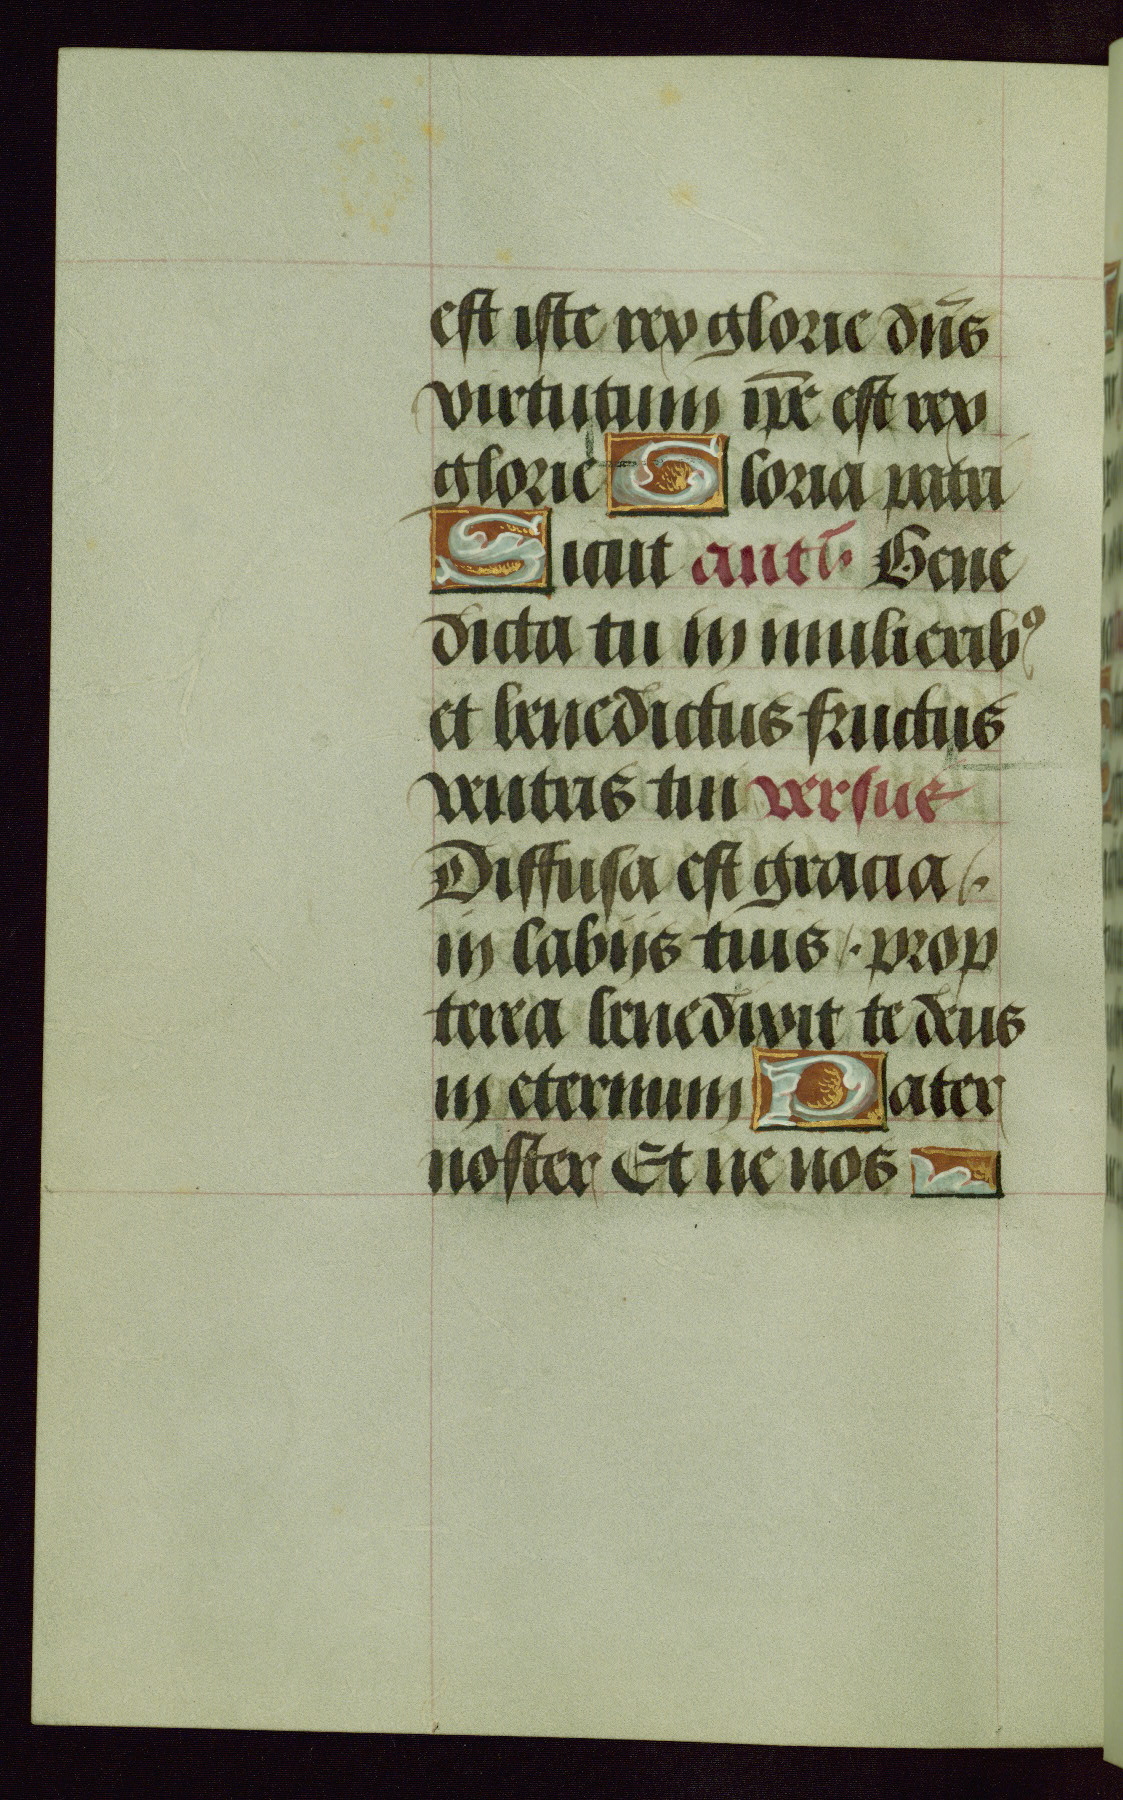 est iste rex glorie dn̄s
virtutum ip̄e est rex
glorie Gloria patri
Sicut anth̄ Bene
dicta tu in mulierib⁹
et benedictus fructus
ventris tui versus
Diffusa est gracia /.
in labijs tuis /. prop
terea benedixit te deus
in eternum Pater
noster Et ne nos